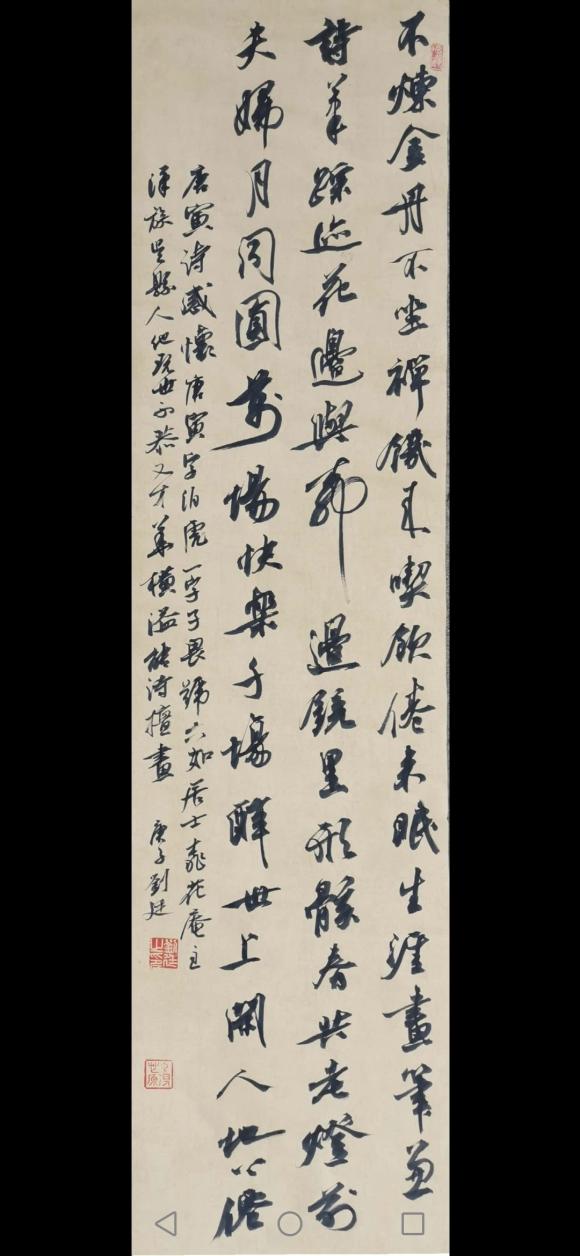 不煉金丹不坐禪饑来喫飯倦来眠生涯畫筆兼
詩筆蹤迹花邊與柳邊鏡里形骸春共老燈前
夫婦月同圓萬場快樂千場醉世上閑人地上僊
唐寅诗感懷唐寅字伯虎一字子畏號六如居士桃花庵主
漢族吳縣人他玩世不恭又才華橫溢能詩擅畫 庚子劉廷